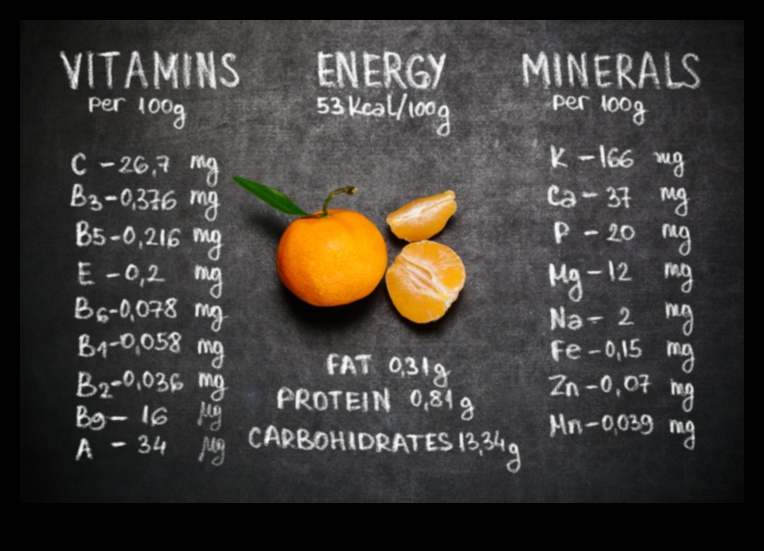 VITAMINS
per 100g
C - 26,7 mg
B3 - 0,376 mg
B5 - 0,216 mg
E - 0,2 mg
B6 - 0,078 mg
B1 - 0,058 mg
B2 - 0,036 mg
B9 - 16 µg
A - 34 µg
ENERGY
53 Kcal/100g
FAT 0,31g
PROTEIN 0,81g
CARBOHIDRATES 13,34g
MINERALS
per 100g
K - 166 mg
Ca - 37 mg
P - 20 mg
Mg - 12 mg
Na - 2 mg
Fe - 0,15 mg
Zn - 0,07 mg
Mn - 0,039 mg